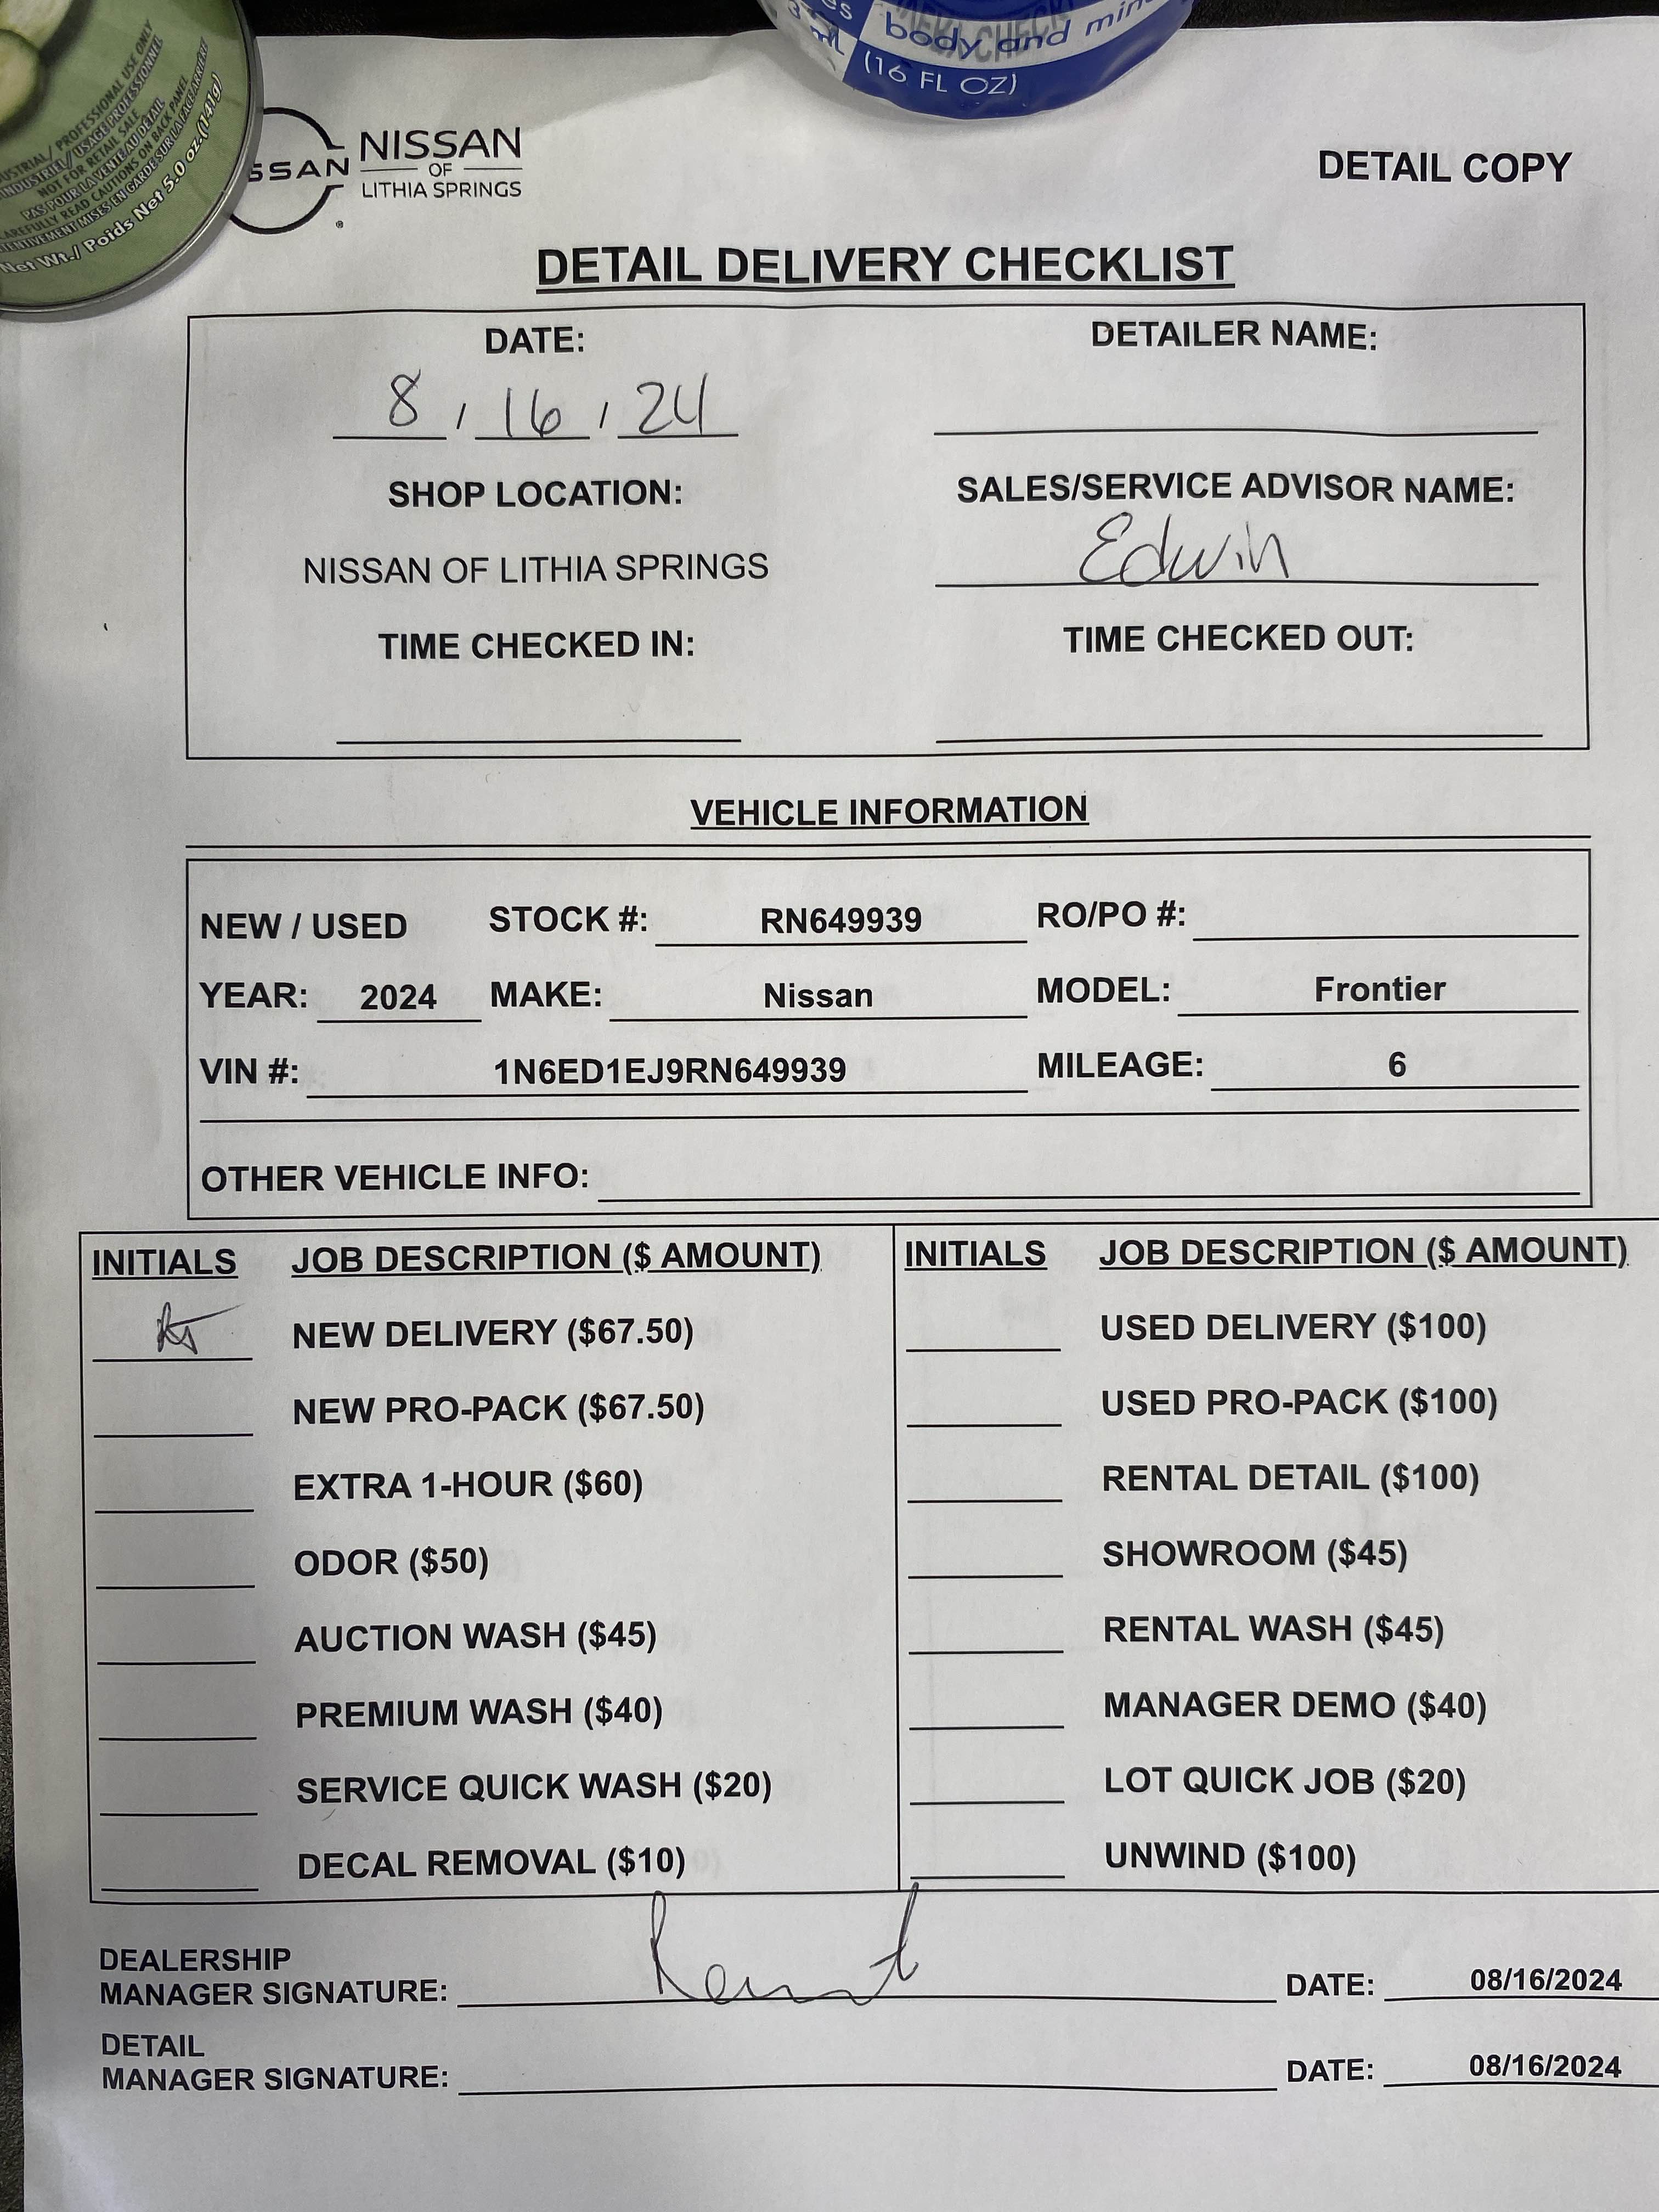 body and min
(16 FL OZ)
USTRIAL / PROFESSIONAL USE ONLY
INDUSTRIEL / USAGE PROFESSIONNEL
NOT FOR RETAIL SALE
PAS POUR LA VENTE AU DÉTAIL
CAREFULLY READ CAUTIONS ON BACK PANEL
TENTIVEMENT MISES EN GARDE SUR LA FACE ARRIÈRE
Net Wt./ Poids Net 5.0 oz.(141g)
SSAN
NISSAN
OF
LITHIA SPRINGS
DETAIL COPY
DETAIL DELIVERY CHECKLIST
DATE: DETAILER NAME:
8 / 16 / 24
SHOP LOCATION: SALES/SERVICE ADVISOR NAME:
NISSAN OF LITHIA SPRINGS Edwin
TIME CHECKED IN: TIME CHECKED OUT:
VEHICLE INFORMATION
NEW / USED STOCK #: RN649939 RO/PO #:
YEAR: 2024 MAKE: Nissan MODEL: Frontier
VIN #: 1N6ED1EJ9RN649939 MILEAGE: 6
OTHER VEHICLE INFO:
INITIALS JOB DESCRIPTION ($ AMOUNT) INITIALS JOB DESCRIPTION ($ AMOUNT)
NEW DELIVERY ($67.50) USED DELIVERY ($100)
NEW PRO-PACK ($67.50) USED PRO-PACK ($100)
EXTRA 1-HOUR ($60) RENTAL DETAIL ($100)
ODOR ($50) SHOWROOM ($45)
AUCTION WASH ($45) RENTAL WASH ($45)
PREMIUM WASH ($40) MANAGER DEMO ($40)
SERVICE QUICK WASH ($20) LOT QUICK JOB ($20)
DECAL REMOVAL ($10) UNWIND ($100)
DEALERSHIP
MANAGER SIGNATURE: DATE: 08/16/2024
DETAIL
MANAGER SIGNATURE: DATE: 08/16/2024